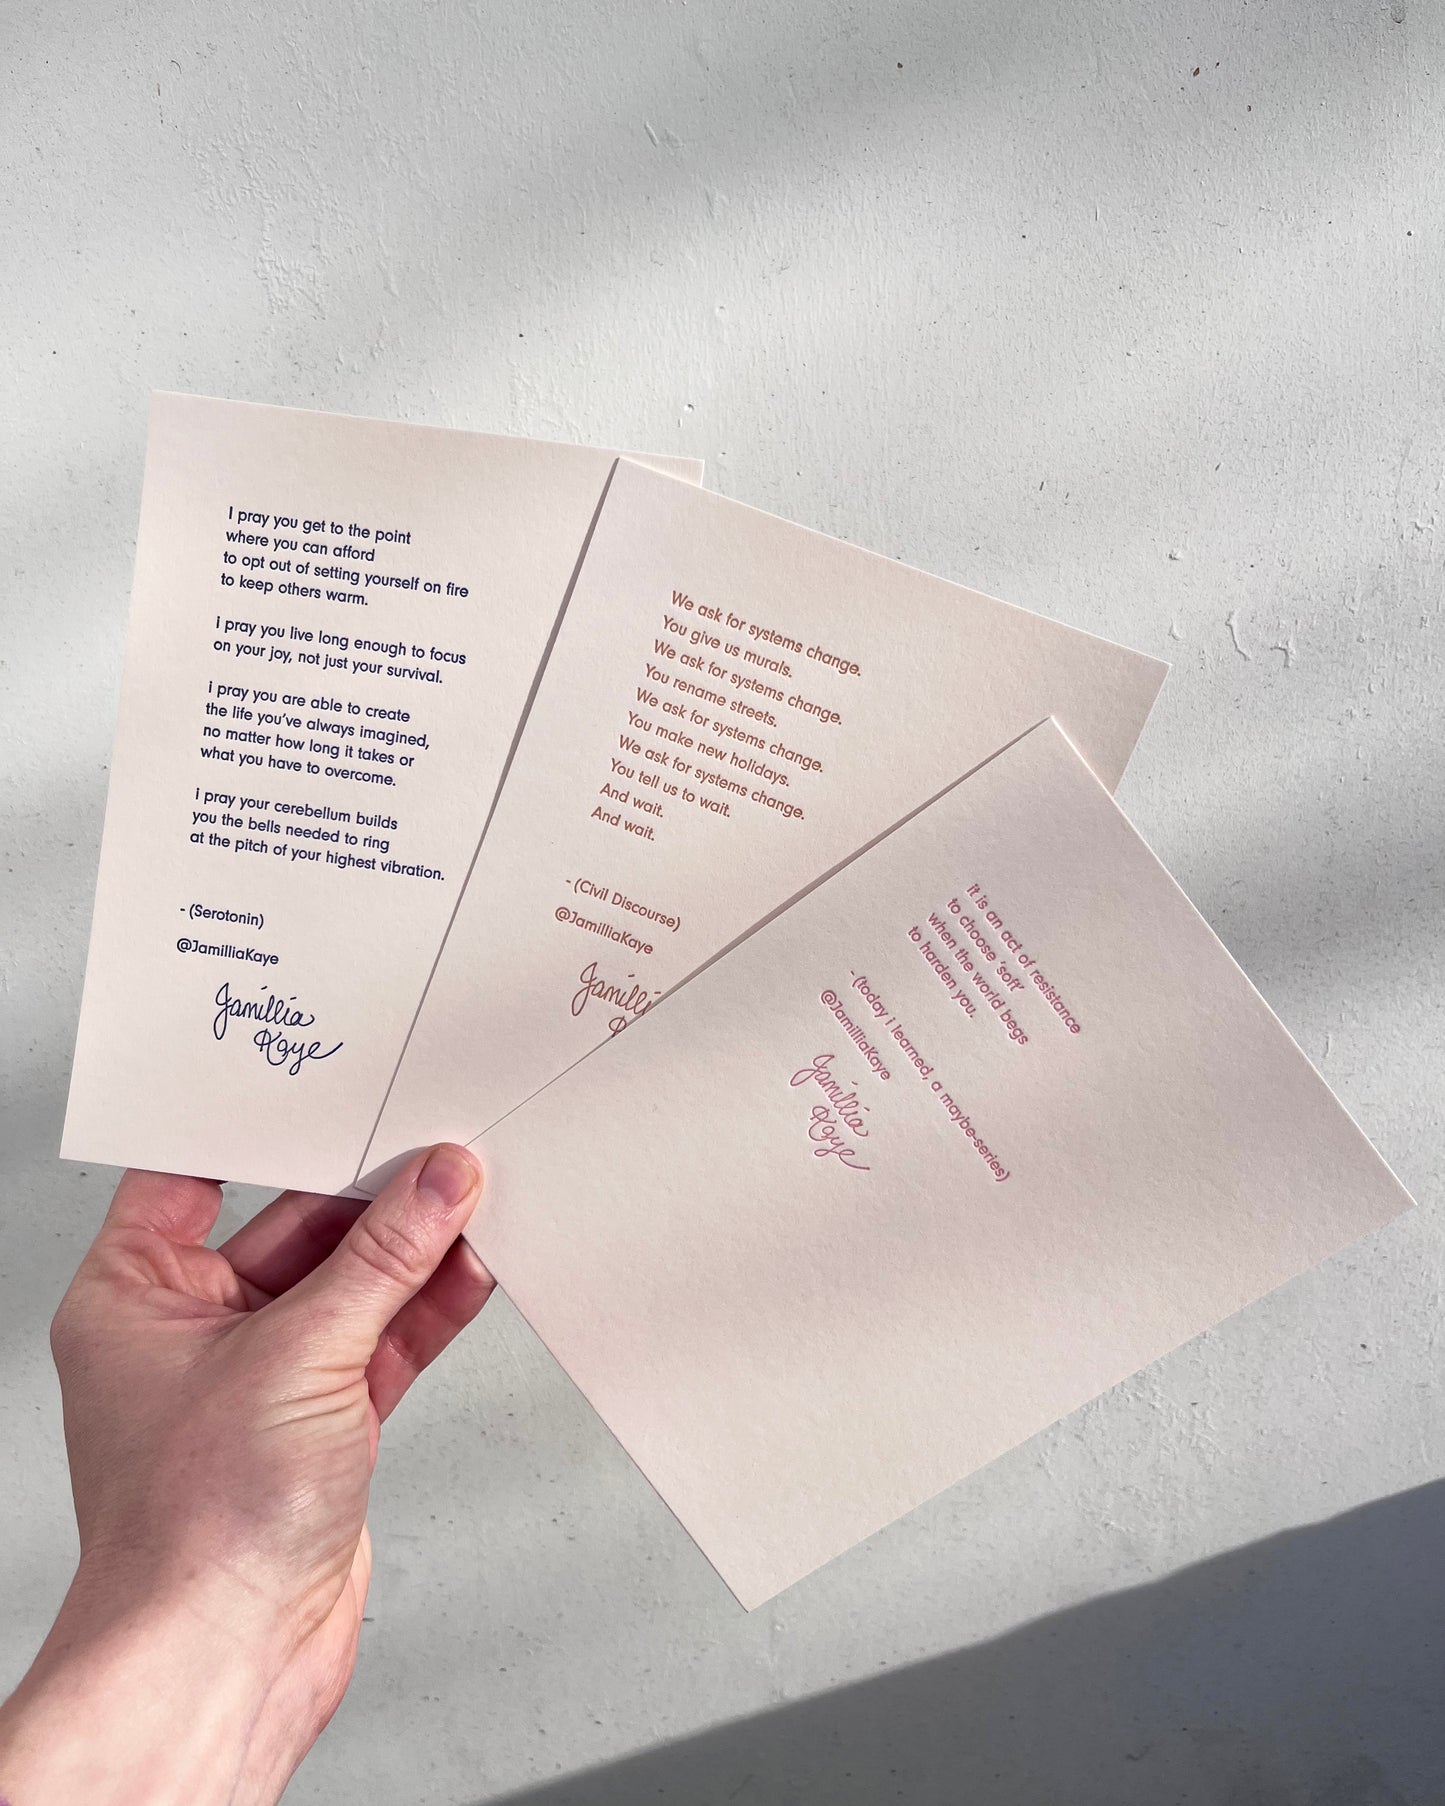 I pray you get to the point
where you can afford
to opt out of setting yourself on fire
to keep others warm.
i pray you live long enough to focus
on your joy, not just your survival.
i pray you are able to create
the life you've always imagined,
no matter how long it takes or
what you have to overcome.
i pray your cerebellum builds
you the bells needed to ring
at the pitch of your highest vibration.
- (Serotonin)
@JamilliaKaye
Jamillia
Kaye
We ask for systems change.
You give us murals.
We ask for systems change.
You rename streets.
We ask for systems change.
You make new holidays.
We ask for systems change.
You tell us to wait.
And wait.
And wait.
- (Civil Discourse)
@JamilliaKaye
Jamilli
it is an act of resistance
to choose 'soft'
when the world begs
to harden you.
- (today i learned, a maybe-series)
@JamilliaKaye
Jamillia
Kaye